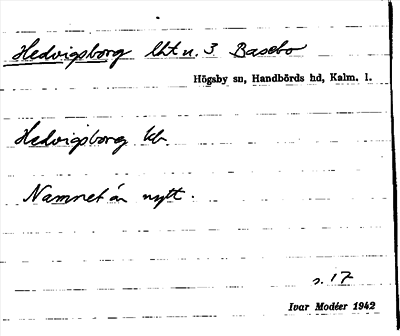 Hedvigsborg lht u. 3 Basebo
Högsby sn, Handbörds hd, Kalm. l.
Hedvigsborg kb.
Namnet är nytt.
s. 17
Ivar Modéer 1942